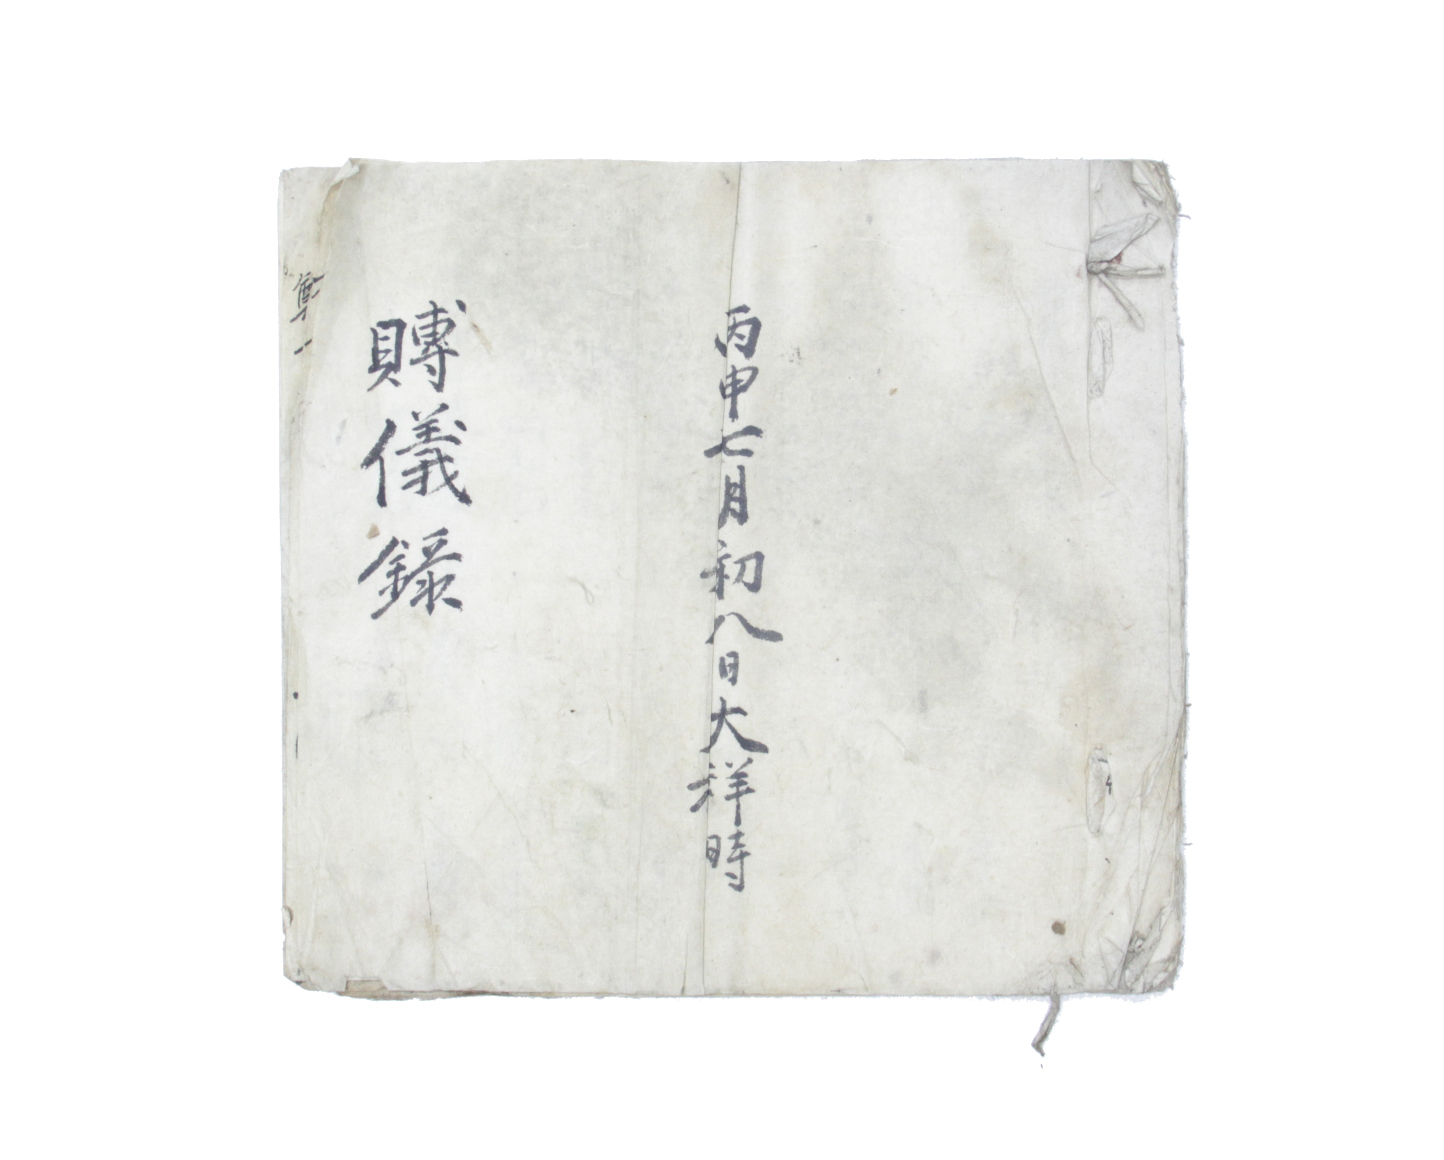 丙申七月初八日大祥時
賻儀錄